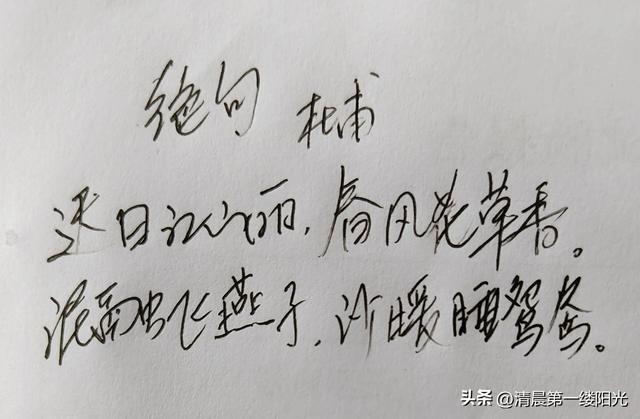 绝句 杜甫
迟日江山丽,春风花草香。
泥融飞燕子,沙暖睡鸳鸯。
头条 @清晨第一缕阳光